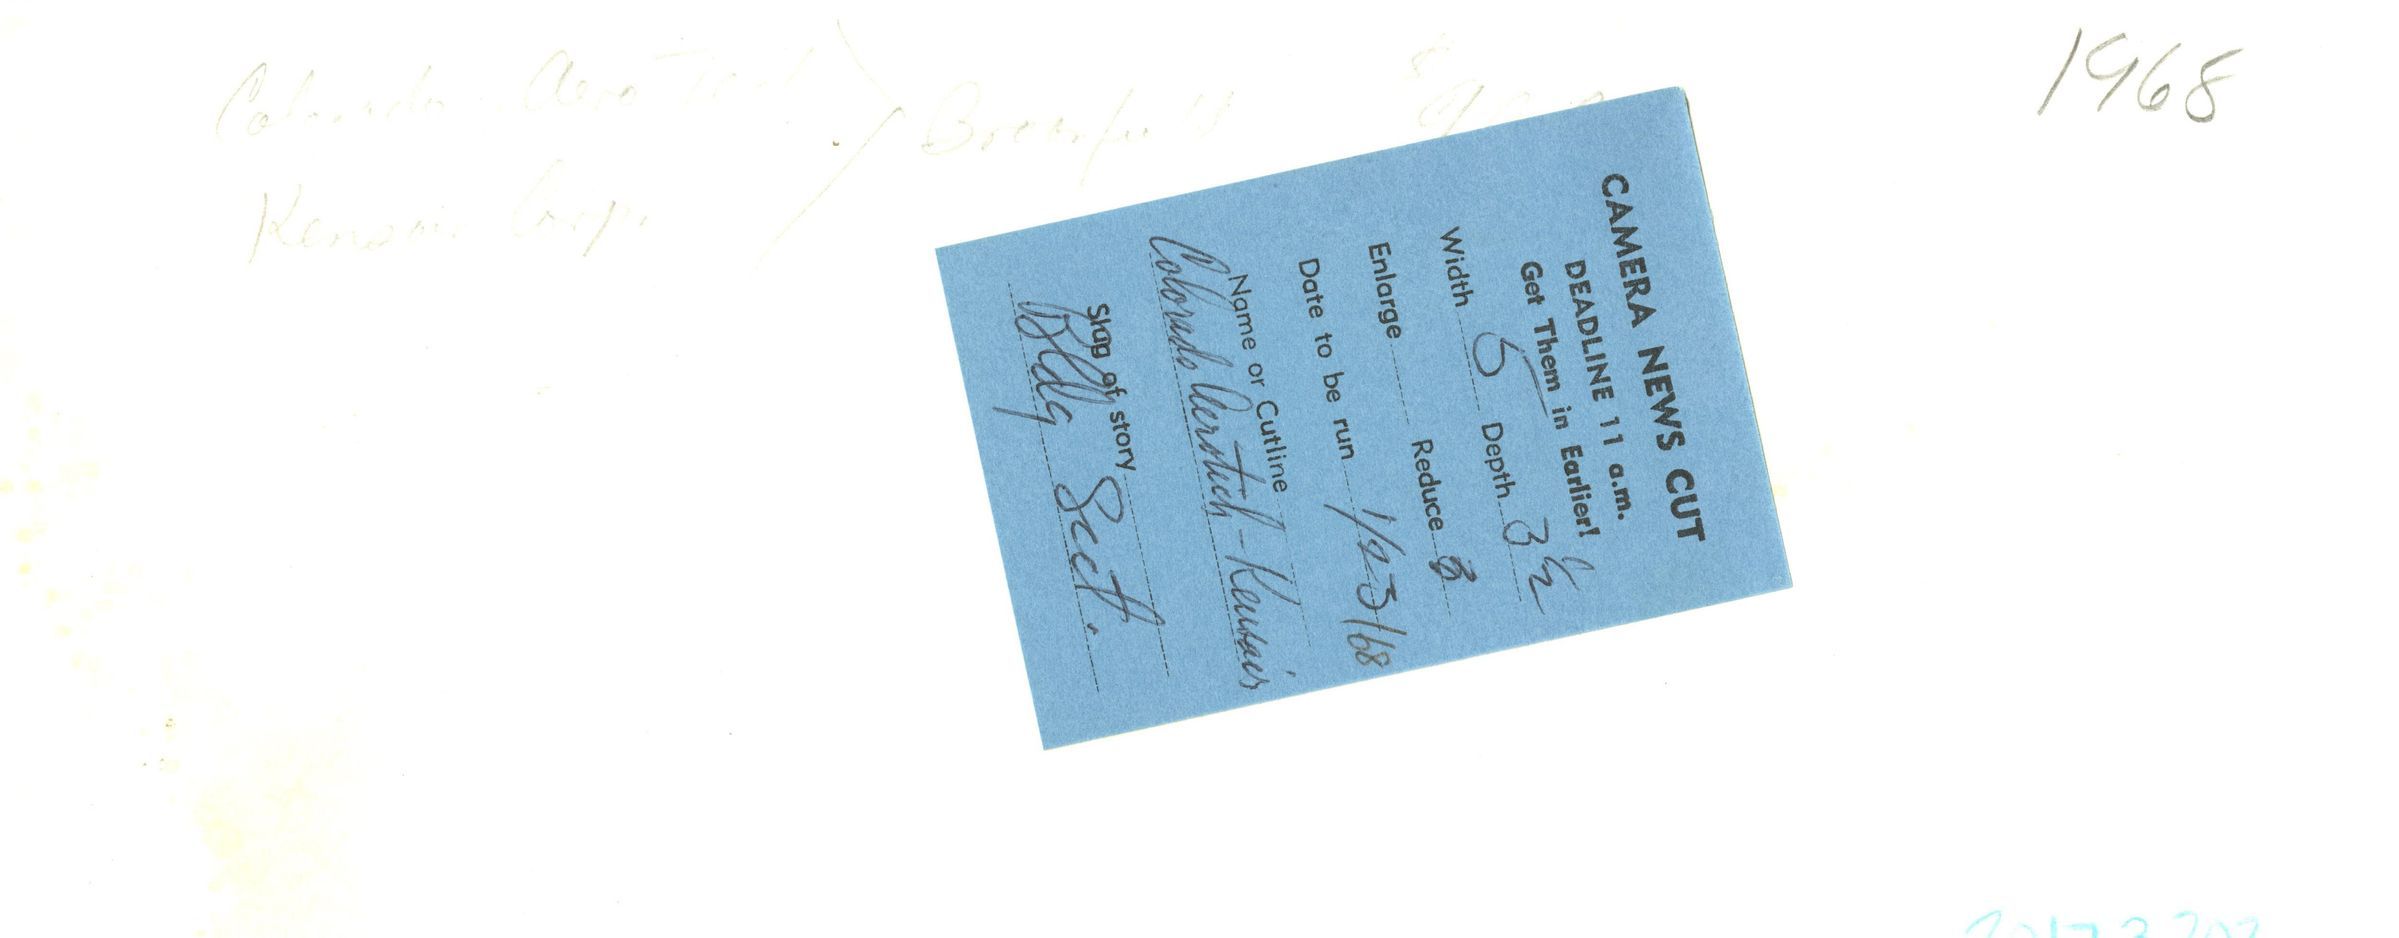 1968
Colorado Aero Tech
Kensair Corp.
CAMERA NEWS CUT
DEADLINE 11 a.m.
Get Them in Earlier!
Width 5 Depth 3 1/2
Enlarge Reduce 3
Date to be run 1/23/68
Name or Cutline
Colorado Aerotech - Kensair
Slug of story
Bldg Sect.